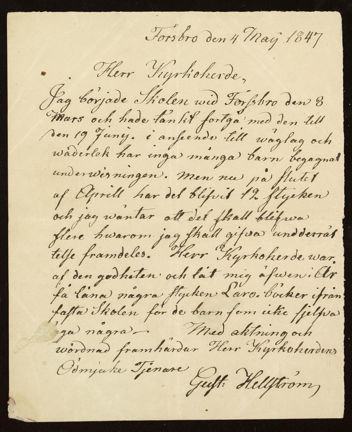 Forsbro den 4 Maij 1847
Herr Kyrkoherde,
Jag började Skolen wid Forssbro den 8
Mars och hade tänkt fortgå med den till
den 19 Junij. i anseende till wäglag och
wäderlek har inga många barn begagnat
underwisningen. Men nu på slutet
af Aprill har det blifvit 12 stycken
och jag wäntar att det skall blifwa
flere hwarom jag skall gifwa undderrät
telse framdeles. Herr Kyrkoherde war
af den godheten och låt mig äfwen i år
få låna några stycken Läro-böcker ifrån
fasta Skolen för de barn som icke sjelfwa
äga några — Med aktning och
wördnad framhärdar Herr Kyrkoherdens
Ödmjuke Tjenare
Gust: Hellström,